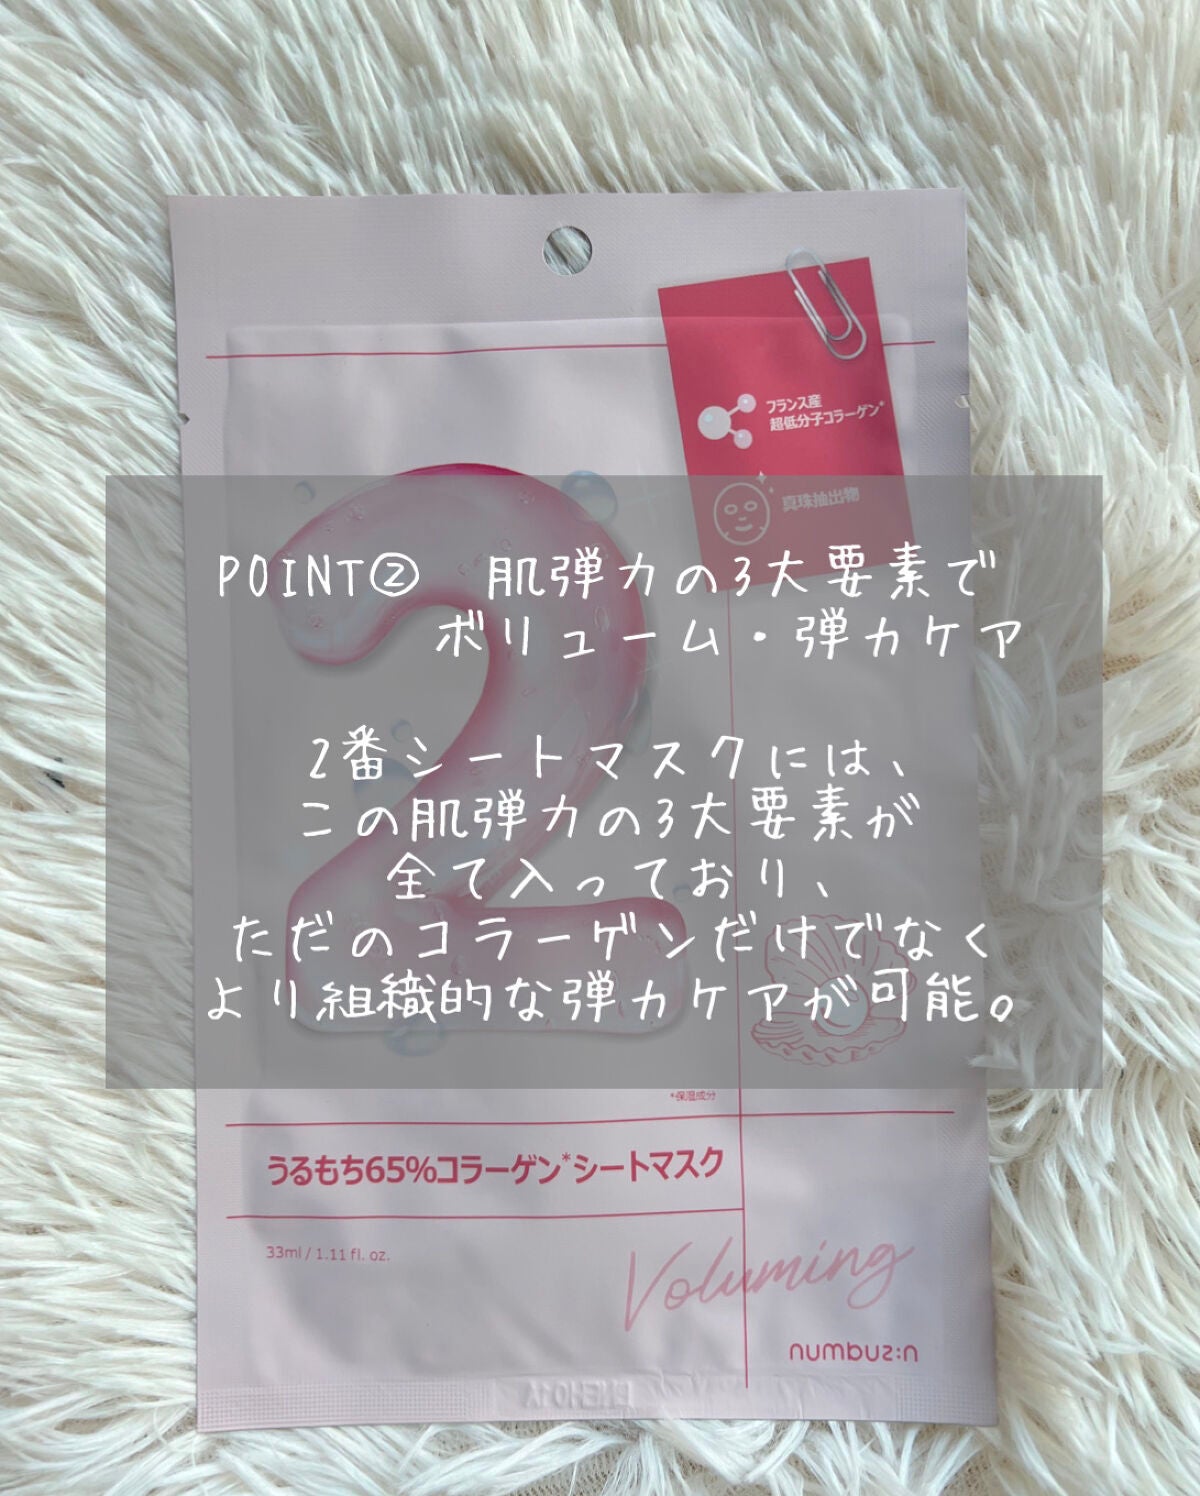 フランス産
超低分子コラーゲン*
真珠抽出物
POINT② 肌弾力の3大要素で
ボリューム・弾力ケア
2番シートマスクには、
この肌弾力の3大要素が
全て入っており、
ただのコラーゲンだけでなく
より組織的な弾力ケアが可能。
2
*保湿成分
うるもち65%コラーゲン*シートマスク
33ml / 1.11 fl. oz.
Voluming
numbuz:n